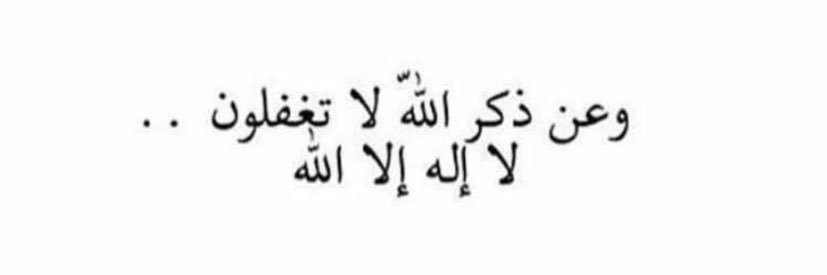 وعن ذكر اللّٰه لا تغفلون ..
لا إله إلا اللّٰه